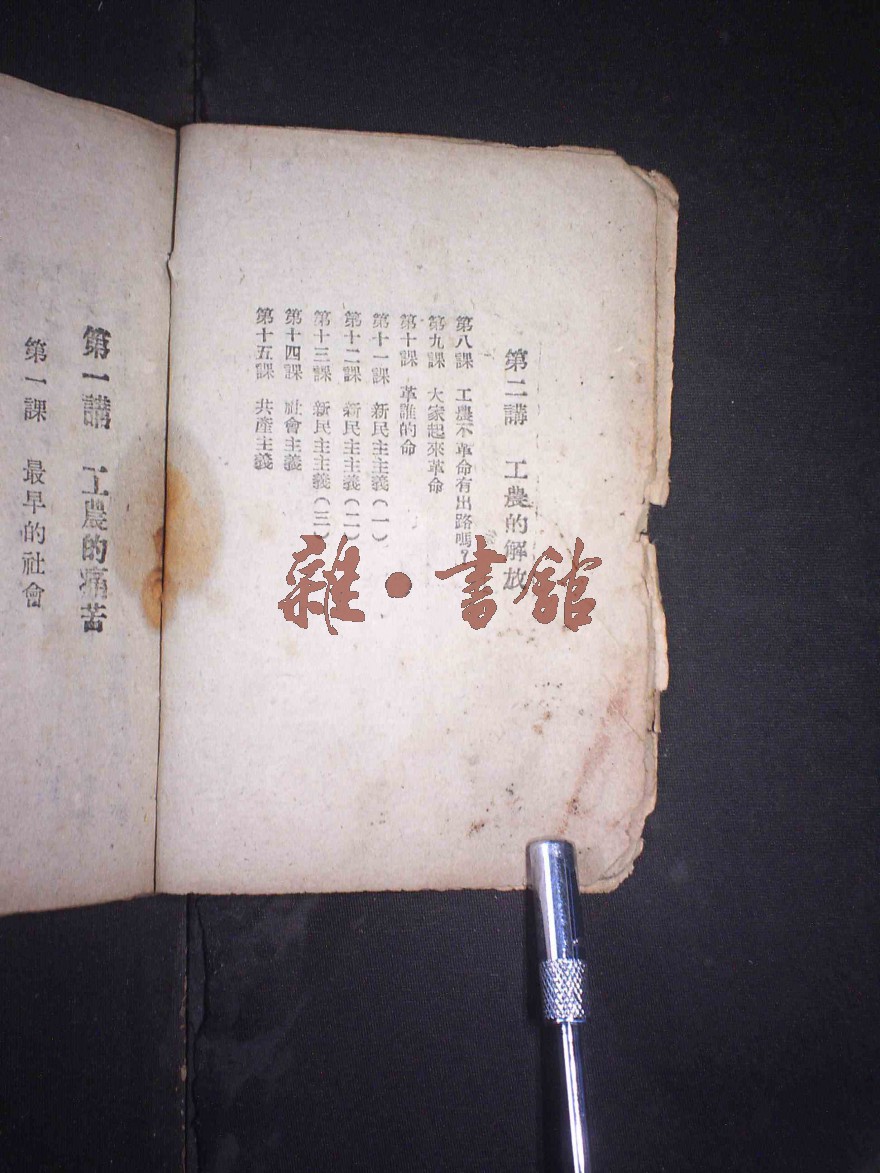 第二講　工農的解放
第八課　工農不革命有出路嗎？
第九課　大家起來革命
第十課　革誰的命
第十一課　新民主主義（一）
第十二課　新民主主義（二）
第十三課　新民主主義（三）
第十四課　社會主義
第十五課　共產主義
第一講　工農的痛苦
第一課　最早的社會
雜·書館